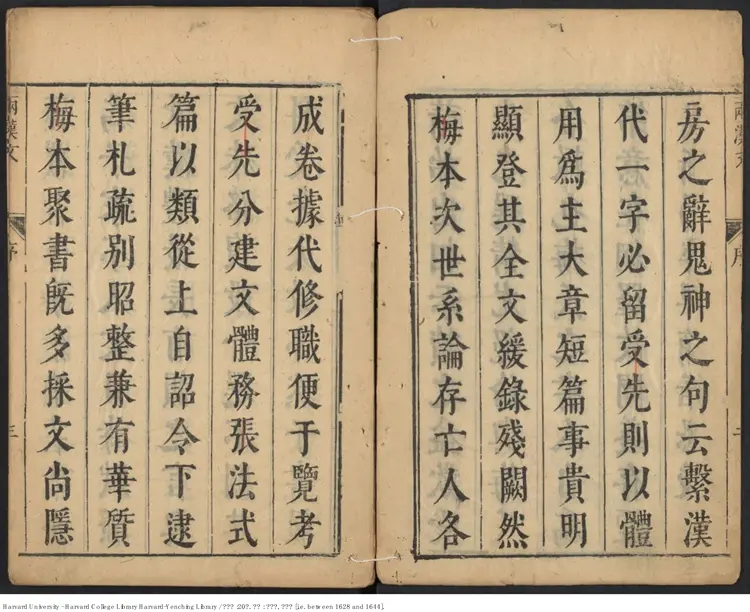 房之辭鬼神之句云繫漢
代一字必留受先則以體
用爲主大章短篇事貴明
顯登其全文緩錄殘闕然
梅本次世系論存亡人各
成卷據代修職便于覽考
受先分建文體務張法式
篇以類從上自詔令下逮
筆札疏別昭整兼有華質
梅本聚書旣多採文尙隱
兩漢文
序
三
Harvard University - Harvard College Library Harvard-Yenching Library / ??? :20?. ?? : ???, ??? [i.e. between 1628 and 1644].